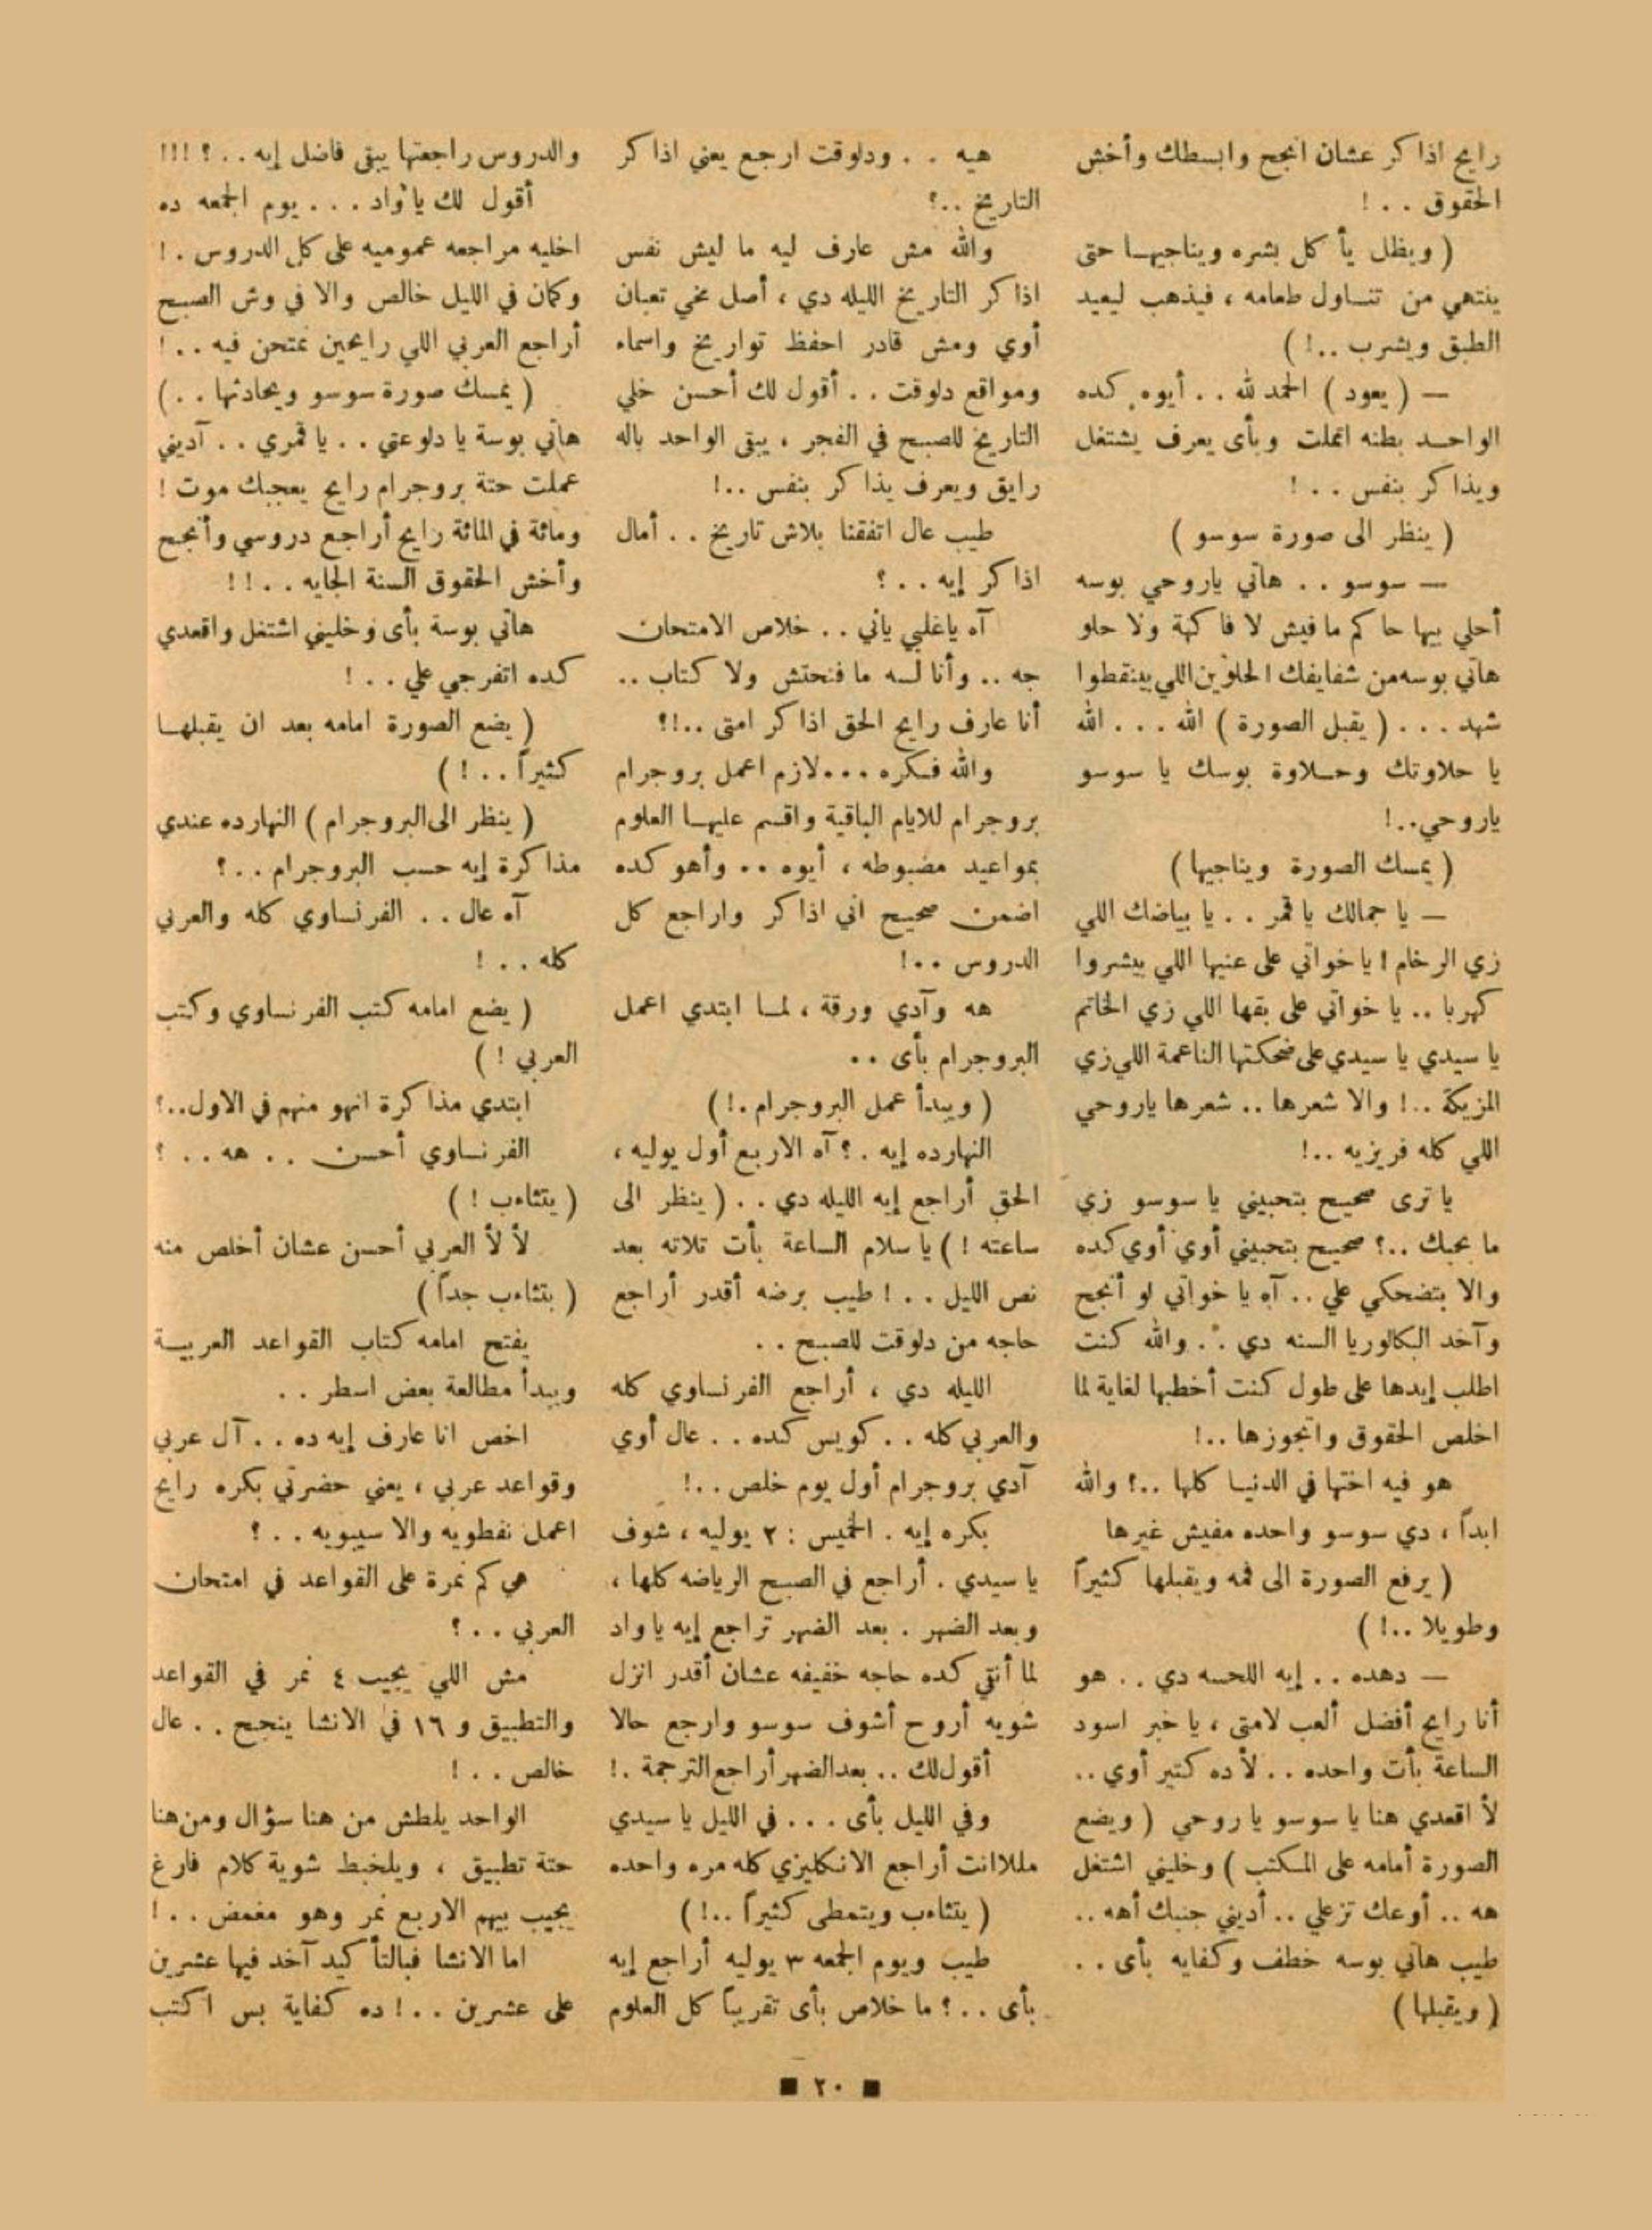 رايح اذاكر عشان انجح وابسطك وأخش
الحقوق . . !
( ويظل يأكل بشره ويناجيهـا حتى
ينتهي من تنـاول طعامه ، فيذهب ليعيد
الطبق ويشرب ..! )
— ( يعود ) الحمد لله . . أيوه كده
الواحـد بطنه اتملت وبأى يعرف يشتغل
ويذاكر بنفس . . !
( ينظر الى صورة سوسو )
— سوسو . . هاتي ياروحي بوسه
أحلي بيها حاكم مافيش لا فاكهة ولا حلو
هاتي بوسه من شفايفك الحلوين اللي بينقطوا
شهد . . . ( يقبل الصورة ) الله . . . الله
يا حلاوتك وحـلاوة بوسك يا سوسو
ياروحي..!
( يمسك الصورة ويناجيها )
— يا جمالك يا قمر . . يا بياضك اللي
زي الرخام ! ياخواتي على عنيها اللي بيشروا
كهربا .. يا خواتي على بقها اللي زي الخاتم
يا سيدي يا سيدي على ضحكتها الناعمة اللي زي
المزيكة ..! والا شعرها .. شعرها ياروحي
اللي كله فريزيه ..!
يا ترى صحيح بتحبيني يا سوسو زي
ما بحبك ..؟ صحيح بتحبيني أوي أوي كده
والا بتضحكي علي .. آه يا خواتي لو أنجح
وآخد البكالوريا السنه دي . . والله كنت
اطلب إيدها على طول كنت أخطبها لغاية لما
اخلص الحقوق واتجوزها ..!
هو فيه اختها في الدنيـا كلها ..؟ والله
ابداً ، دي سوسو واحده مفيش غيرها
( يرفع الصورة الى فمه ويقبلها كثيراً
وطويلا ..! )
— دهده . . إيه اللحسه دي . . هو
أنا رايح أفضل ألعب لامتى ، يا خبر اسود
الساعة بأت واحده . . لأ ده كتير أوي ..
لأ اقعدي هنا يا سوسو يا روحي ( ويضع
الصورة أمامه على المـكتب ) وخليني اشتغل
هه .. أوعك تزعلي .. أديني جنبك أهه ..
طيب هاتي بوسه خطف وكفايه بأى . .
( ويقبلها )
هيه . . ودلوقت ارجع يعني اذاكر
التاريخ ..؟
والله مش عارف ليه ما ليش نفس
اذاكر التاريخ الليله دي ، أصل مخي تعبان
أوي ومش قادر احفظ تواريخ واسماء
ومواقع دلوقت . . أقول لك أحسن خلي
التاريخ للصبح في الفجر ، يبقى الواحد باله
رايق ويعرف يذاكر بنفس ..!
طيب عال اتفقنا بلاش تاريخ . . أمال
اذاكر إيه . . ؟
آه ياغلبي ياني . . خلاص الامتحان
جه .. وأنا لسه ما فتحتش ولا كتاب ..
أنا عارف رايح الحق اذاكر امتى ..!؟
والله فـكره ... لازم اعمل بروجرام
بروجرام للايام الباقية واقسم عليهـا العلوم
بمواعيد مضبوطه ، أيوه .. وأهو كده
اضمن صحيح اني اذاكر واراجع كل
الدروس ..!
هه وآدي ورقة ، لمـا ابتدي اعمل
البروجرام بأى ..
( ويبدأ عمل البروجرام .! )
النهارده إيه . ؟ آه الاربع أول يوليه ،
الحق أراجع إيه الليله دي . . ( ينظر الى
ساعته ! ) يا سلام الساعة بأت تلاته بعد
نص الليل . . ! طيب برضه أقدر أراجع
حاجه من دلوقت للصبح . .
الليله دي ، أراجع الفرنساوي كله
والعربي كله . . كويس كده . . عال أوي
آدي بروجرام أول يوم خلص . .!
بكره إيه . الخميس : ٢ يوليه ، شوف
يا سيدي . أراجع في الصبح الرياضه كلها ،
وبعد الضهر . بعد الضهر تراجع إيه يا واد
لما أنتي كده حاجه خفيفه عشان أقدر انزل
شويه أروح أشوف سوسو وارجع حالا
أقول لك .. بعد الضهر أراجع الترجمة .!
وفي الليل بأى . . . في الليل يا سيدي
ملا انت أراجع الانكليزي كله مره واحده
( يتثاءب ويتمطى كثيراً ..! )
طيب ويوم الجمعه ٣ يوليه أراجع إيه
بأى . . ؟ ما خلاص بأى تقريباً كل العلوم
والدروس راجعتها يبقى فاضل إيه . . ؟ !!!
أقول لك يا واد . . . يوم الجمعه ده
اخليه مراجعه عموميه على كل الدروس . !
وكمان في الليل خالص والا في وش الصبح
أراجع العربي اللي رايحين نمتحن فيه . . !
( يمسك صورة سوسو ويحادثها . . )
هاتي بوسة يا دلوعتي . . يا قمري . . آديني
عملت حتة بروجرام رايح يعجبك موت !
ومائة في المائة رايح أراجع دروسي وأنجح
وأخش الحقوق السنة الجايه . . !!
هاتي بوسة بأى وخليني اشتغل واقعدي
كده اتفرجي علي . . !
( يضع الصورة امامه بعد ان يقبلهـا
كثيراً . . ! )
( ينظر الى البروجرام ) النهارده عندي
مذاكرة إيه حسب البروجرام . . ؟
آه عال . . الفرنساوي كله والعربي
كله . . !
( يضع امامه كتب الفرنساوي وكتب
العربي ! )
ابتدي مذاكرة انهو منهم في الاول..؟
الفرنساوي أحسن . . هه . . ؟
( يتثاءب ! )
لأ لأ العربي أحسن عشان أخلص منه
( يتثاءب جداً )
يفتح امامه كتاب القواعد العربيـة
ويبدأ مطالعة بعض اسطر . .
اخص انا عارف إيه ده . . آل عربي
وقواعد عربي ، يعني حضرتي بكره رايح
اعمل نفطويه والا سيبويه . . ؟
هي كم نمرة على القواعد في امتحان
العربي . . ؟
مش اللي يجيب ٤ نمر في القواعد
والتطبيق و ١٦ في الانشا ينجح . . عال
خالص . . !
الواحد يلطش من هنا سؤال ومن هنا
حتة تطبيق ، ويلخبط شوية كلام فارغ
يجيب بيهم الاربع نمر وهو مغمض . . !
اما الانشا فبالتأكيد آخد فيها عشرين
على عشرين . . ! ده كفاية بس اكتب
■ ٢٠ ■